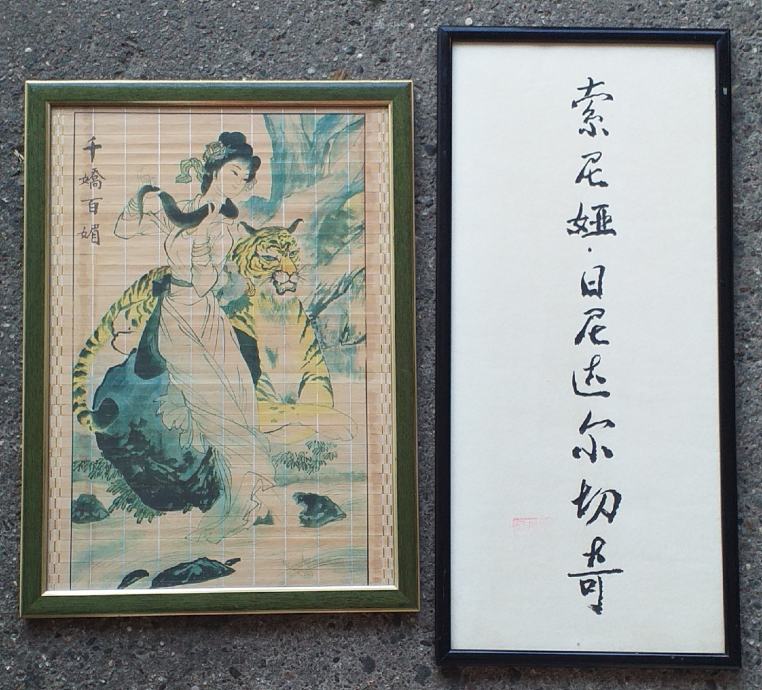 千嬌百媚
索尼娅·日尼达尔切奇